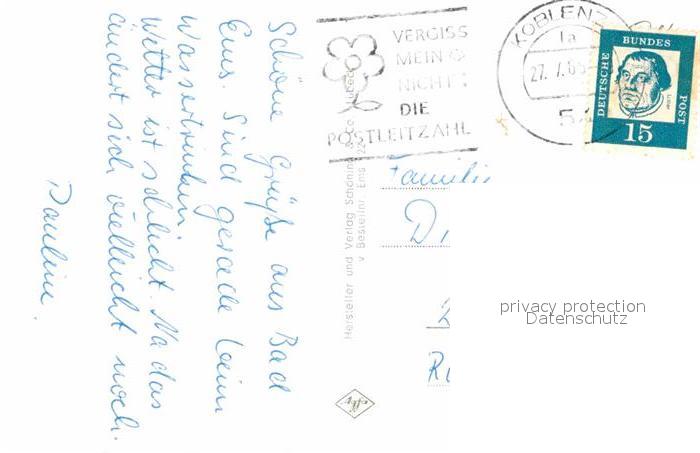 Schöne Grüße aus Bad
Ems. Sind gerade beim
Wassertrinken
Wetter ist schlecht. Na das
ändert sich vielleicht noch.
Pauline.
Hersteller und Verlag Schöning & Co Lübeck
Bestellnr. Ems
VERGISS
MEIN
NICHT
DIE
POSTLEITZAHL
KOBLENZ
1a
27. 7.
DEUTSCHE
BUNDES
POST
Luther
15
Familie
privacy protection
Datenschutz